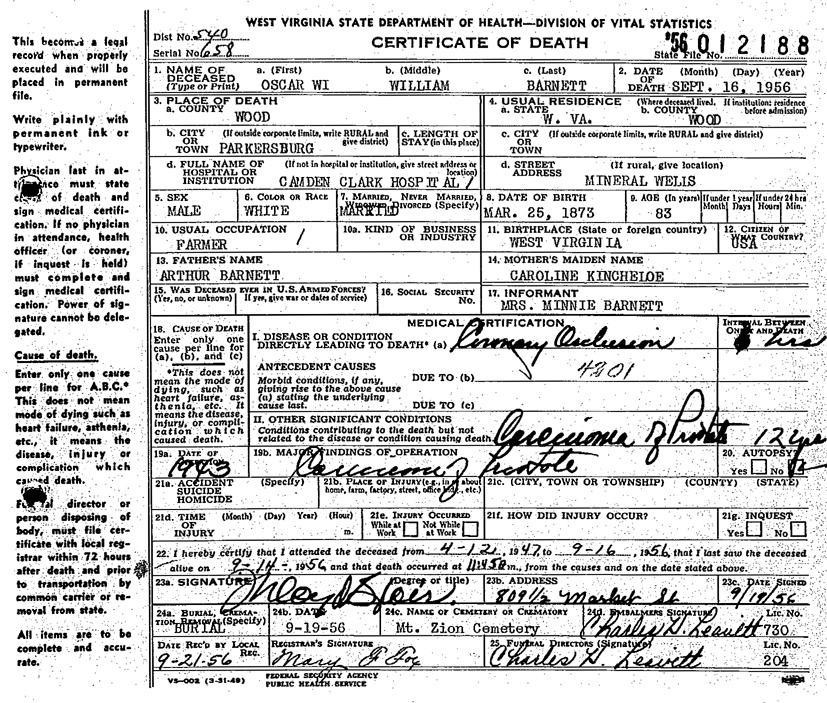 WEST VIRGINIA STATE DEPARTMENT OF HEALTH—DIVISION OF VITAL STATISTICS
Dist No. 540
Serial No. 658
CERTIFICATE OF DEATH
State File No. '56 012188
This becomes a legal
record when properly
executed and will be
placed in permanent
file.
Write plainly with
permanent ink or
typewriter.
Physician last in at-
must state
of death and
sign medical certifi-
cation. If no physician
in attendance, health
officer (or coroner,
if inquest is held)
must complete and
sign medical certifi-
cation. Power of sig-
nature cannot be dele-
gated.
Cause of death.
Enter only one cause
per line for A.B.C.*
This does not mean
mode of dying such as
heart failure, asthenia,
etc., it means the
disease, injury or
complication which
caused death.
director or
person disposing of
body, must file cer-
tificate with local reg-
istrar within 72 hours
after death and prior
to transportation by
common carrier or re-
moval from state.
All items are to be
complete and accu-
rate.
1. NAME OF DECEASED (Type or Print) a. (First) b. (Middle) c. (Last)
OSCAR WI WILLIAM BARNETT
2. DATE OF DEATH (Month) (Day) (Year)
SEPT. 16, 1956
3. PLACE OF DEATH
a. COUNTY
WOOD
4. USUAL RESIDENCE (Where deceased lived. If institution: residence before admission)
a. STATE b. COUNTY
W. VA. WOOD
b. CITY OR TOWN (If outside corporate limits, write RURAL and give district)
PARKERSBURG
c. LENGTH OF STAY (in this place)
c. CITY OR TOWN (If outside corporate limits, write RURAL and give district)
d. FULL NAME OF HOSPITAL OR INSTITUTION (If not in hospital or institution, give street address or location)
CAMDEN CLARK HOSPITAL
d. STREET ADDRESS (If rural, give location)
MINERAL WELLS
5. SEX
MALE
6. COLOR OR RACE
WHITE
7. MARRIED, NEVER MARRIED, WIDOWED, DIVORCED (Specify)
MARRIED
8. DATE OF BIRTH
MAR. 25, 1873
9. AGE (In years) If under 1 year Months Days If under 24 hrs Hours Min.
83
10. USUAL OCCUPATION
FARMER
10a. KIND OF BUSINESS OR INDUSTRY
11. BIRTHPLACE (State or foreign country)
WEST VIRGINIA
12. CITIZEN OF WHAT COUNTRY?
USA
13. FATHER'S NAME
ARTHUR BARNETT
14. MOTHER'S MAIDEN NAME
CAROLINE KINCHELOE
15. WAS DECEASED EVER IN U.S. ARMED FORCES?
(Yes, no, or unknown) If yes, give war or dates of service)
16. SOCIAL SECURITY No.
17. INFORMANT
MRS. MINNIE BARNETT
MEDICAL CERTIFICATION
18. CAUSE OF DEATH
Enter only one
cause per line for
(a), (b), and (c)
*This does not
mean the mode of
dying, such as
heart failure, as-
thenia, etc. It
means the disease,
injury, or compli-
cation which
caused death.
I. DISEASE OR CONDITION
DIRECTLY LEADING TO DEATH* (a) Coronary Occlusion
INTERVAL BETWEEN ONSET AND DEATH
hrs
ANTECEDENT CAUSES
Morbid conditions, if any,
giving rise to the above cause
(a) stating the underlying
cause last.
DUE TO (b) 4201
DUE TO (c)
II. OTHER SIGNIFICANT CONDITIONS
Conditions contributing to the death but not
related to the disease or condition causing death. Carcinoma of Prostate 12 yrs
19a. DATE OF OPERATION
1943
19b. MAJOR FINDINGS OF OPERATION
Carcinoma of Prostate
20. AUTOPSY?
Yes No
21a. ACCIDENT SUICIDE HOMICIDE (Specify)
21b. PLACE OF INJURY (e.g., in or about home, farm, factory, street, office bldg., etc.)
21c. (CITY, TOWN OR TOWNSHIP) (COUNTY) (STATE)
21d. TIME OF INJURY (Month) (Day) (Year) (Hour) m.
21e. INJURY OCCURRED
While at Work Not While at Work
21f. HOW DID INJURY OCCUR?
21g. INQUEST
Yes No
22. I hereby certify that I attended the deceased from 4-1-21, 1947, to 9-16, 1956, that I last saw the deceased
alive on 9-14-, 1956, and that death occurred at m., from the causes and on the date stated above.
23a. SIGNATURE (Degree or title)
23b. ADDRESS
809½ Market St
23c. DATE SIGNED
9/19/56
24a. BURIAL, CREMATION, REMOVAL (Specify)
BURIAL
24b. DATE
9-19-56
24c. NAME OF CEMETERY OR CREMATORY
Mt. Zion Cemetery
24d. EMBALMERS SIGNATURE Lic. No.
Charles H. Leavett 730
DATE REC'D BY LOCAL REG.
9-21-56
REGISTRAR'S SIGNATURE
Mary F Fox
25. FUNERAL DIRECTORS (Signature) Lic. No.
Charles H. Leavett 204
VS-002 (3-31-49)
FEDERAL SECURITY AGENCY
PUBLIC HEALTH SERVICE